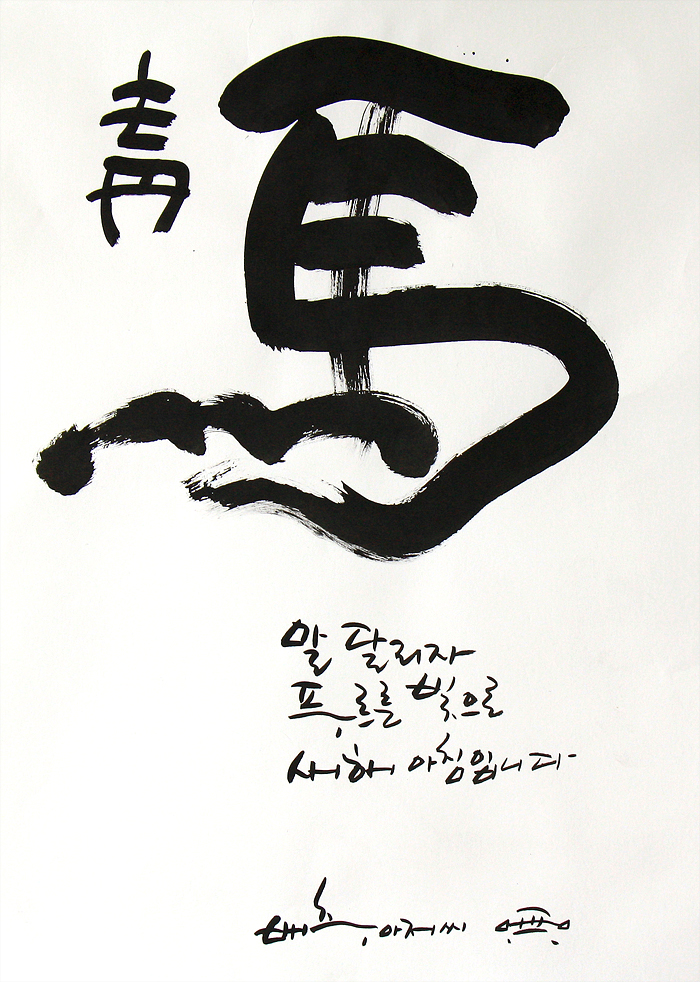 靑 馬
말 달리자
푸르른 빛으로
새해 아침입니다
배추아저씨